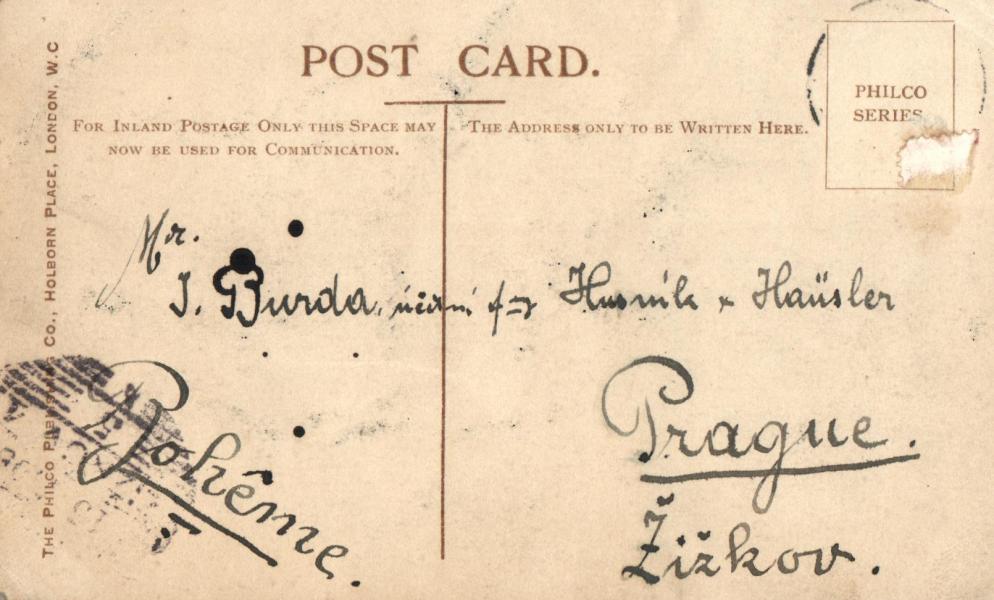 POST CARD.
FOR INLAND POSTAGE ONLY THIS SPACE MAY
NOW BE USED FOR COMMUNICATION.
THE ADDRESS ONLY TO BE WRITTEN HERE.
PHILCO
SERIES
THE PHILCO PUBLISHING CO., HOLBORN PLACE, LONDON, W.C
Mr.
J. Burda, Husník & Haüsler
Prague.
Žižkov.
Bohême.